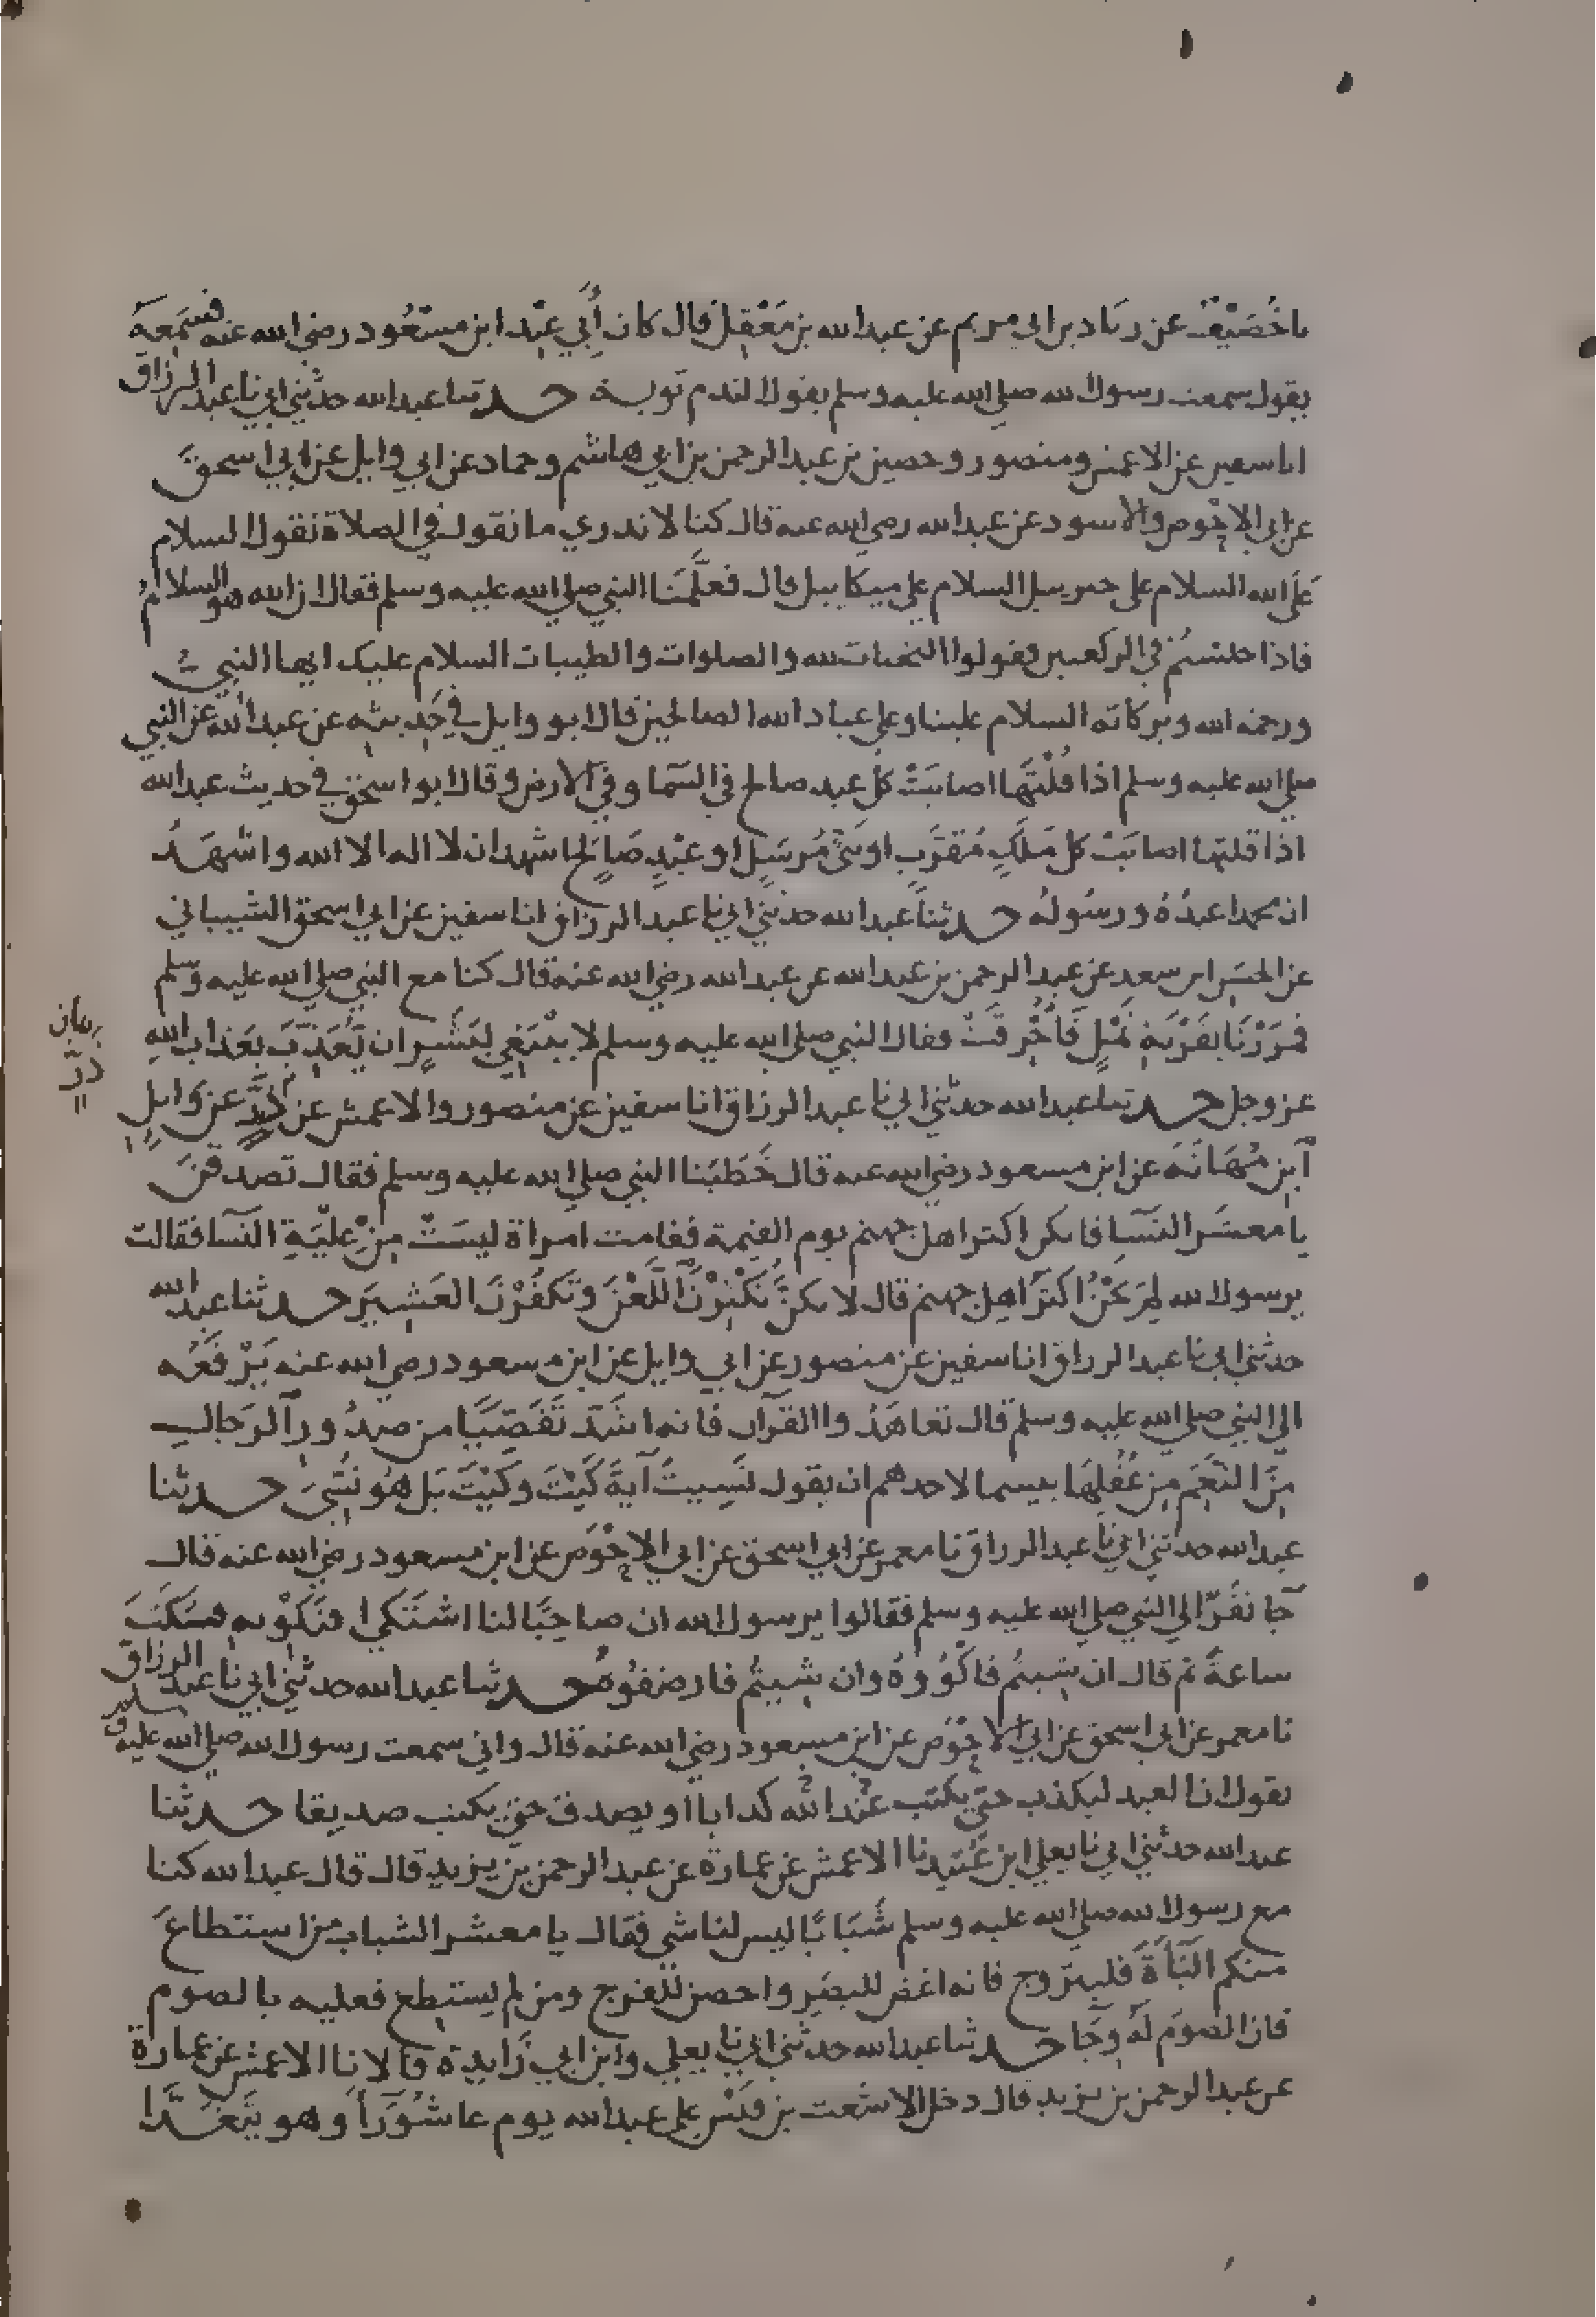 نا خُصَيْف عن زياد بن ابي مريم عن عبد الله بن مَعْقِل قال كان أَبي عِنْد ابن مسْعُود رضي الله عنه فسَمِعَهُ
يقول سمعت رسول الله صلى الله عليه وسلم يقول الندم توبة حدثنا عبد الله حدثني ابي نا عبد الرزاق
انا سفين عن الاعمش ومنصور وحصين بن عبد الرحمن بن ابي هاشم وحماد عن ابي وايل عن ابي اسحقَ
عن ابي الاحْوص والاسود عن عبد الله رضي الله عنه قال كنا لا ندري ما نقول في الصلاة نقول السلام
عَلَى الله السلام على جبريل السلام على ميكاييل قال فعلَّمَنا النبي صلى الله عليه وسلم فقال ان الله هو السلامُ
فاذا جلستُم في الركعتين فقولوا التحيات لله والصلوات والطيبات السلام عليك ايها النبي
ورحمة الله وبركاته السلام علينا وعلى عباد الله الصالحين قال ابو وايل في حَدِيثِهِ عن عبد الله عن النبي
صلى الله عليه وسلم اذا قُلْتَهَا اصابَتْ كلَّ عبد صالح في السَّما وفي الارض وقال ابو اسحق في حديث عبد الله
اذا قلتها اصابَتْ كل مَلَكٍ مُقَرَّبٍ او نَبِيٍّ مُرسَلٍ او عَبْدٍ صَالِحٍ اشهد ان لا اله الا الله واشهَدُ
ان محمدا عبدُهُ ورسُولهُ حدثنا عبد الله حدثني ابي نا عبد الرزاق انا سفين عن ابي اسحق الشيباني
عن الحسَن ابن سعد عن عبد الرحمن بن عبد الله عن عبد الله رضي الله عنه قال كنا مع النبي صلى الله عليه وسلم
فمَرَرْنَا بقَرْيَةِ نَمْلٍ فَأُحْرِقَتْ فقال النبي صلى الله عليه وسلم لا يَنْبَغِي لِبَشَرٍ ان يُعَذِّبَ بعَذابِ اللهِ
عز وجل حدثنا عبد الله حدثني ابي نا عبد الرزاق انا سفين عن منصور والاعمش عن ذَرٍّ عن وَايلِ
بيان
ذرّ
ابنِ مُهَانَةَ عن ابن مسعود رضي الله عنه قال خَطَبَنا النبي صلى الله عليه وسلم فقال تصدقنَ
يا معشَر النِّسَا فانكن اكثر اهل جهنم يوم القيمة فقامت امراة ليسَتْ مِنْ عِلْيَةِ النّسا فقالت
يرسول الله لِمَ نَحْنُ اكثَر اهل جهنم قال لانكنَّ تُكْثِرْنَ اللَّعْنَ وَتَكفُرْنَ العَشِيرَ حدثنا عبد الله
حدثني ابي نا عبد الرزاق انا سفين عن منصور عن ابي وايل عن ابن مسعود رضي الله عنه يَرْفَعُه
الى النبي صلى الله عليه وسلم قال تعاهَدُوا القرآن فانه اشَدّ تَفَصِّيًا من صدُورِ الرجال
مِنَ النَّعَمِ مِن عُقُلِهَا بيسما لاحدهم ان يقول نَسِيتُ آيةَ كَيْتَ وكَيْتَ بَل هُو نُسِّيَ حدثنا
عبد الله حدثني ابي نا عبد الرزاق نا معمر عن ابي اسحق عن ابي الاحْوَص عن ابن مسعود رضي الله عنه قال
جا نفَرٌ الى النبي صلى الله عليه وسلم فقالوا يرسول الله ان صاحبًا لنا اشتَكى افَنَكْوِيهِ فسَكَتَ
ساعةً ثم قال ان شِيتُم فاكْوُوهُ وان شِيتُم فارضفُوهُ حدثنا عبد الله حدثني ابي نا عبد الرزاق
نا معمر عن ابي اسحق عن ابي الاحْوَص عن ابن مسعود رضي الله عنه قال واني سمعت رسول الله صلى الله عليه وسلم
يقول ان العبد ليكذب حتى يكتب عنْد الله كذابا او يصدق حتى يكتب صديقا حدثنا
عبد الله حدثني ابي نا يعلى ابن عُبَيد نا الاعمش عن عمارة عن عبد الرحمن بن يزيد قال قال عبد الله كنا
مع رسول الله صلى الله عليه وسلم شَبَابًا ليس لنا شي فقال يا معشر الشباب من استطاعَ
منكم البَأةَ فليتزوج فانه اغض للبصَرِ واحصن للفرج ومن لم يستطع فعليه بالصوم
فان الصومَ لَهُ وِجَا حدثنا عبد الله حدثني ابي نا يعلى وابن ابي زَايدة قالا نا الاعمش عن عمارة
عن عبد الرحمن بن يزيد قال دخل الاشعت بن قَيْس على عبد الله يوم عاشُورَاَ وهو يَتَغَدَّا